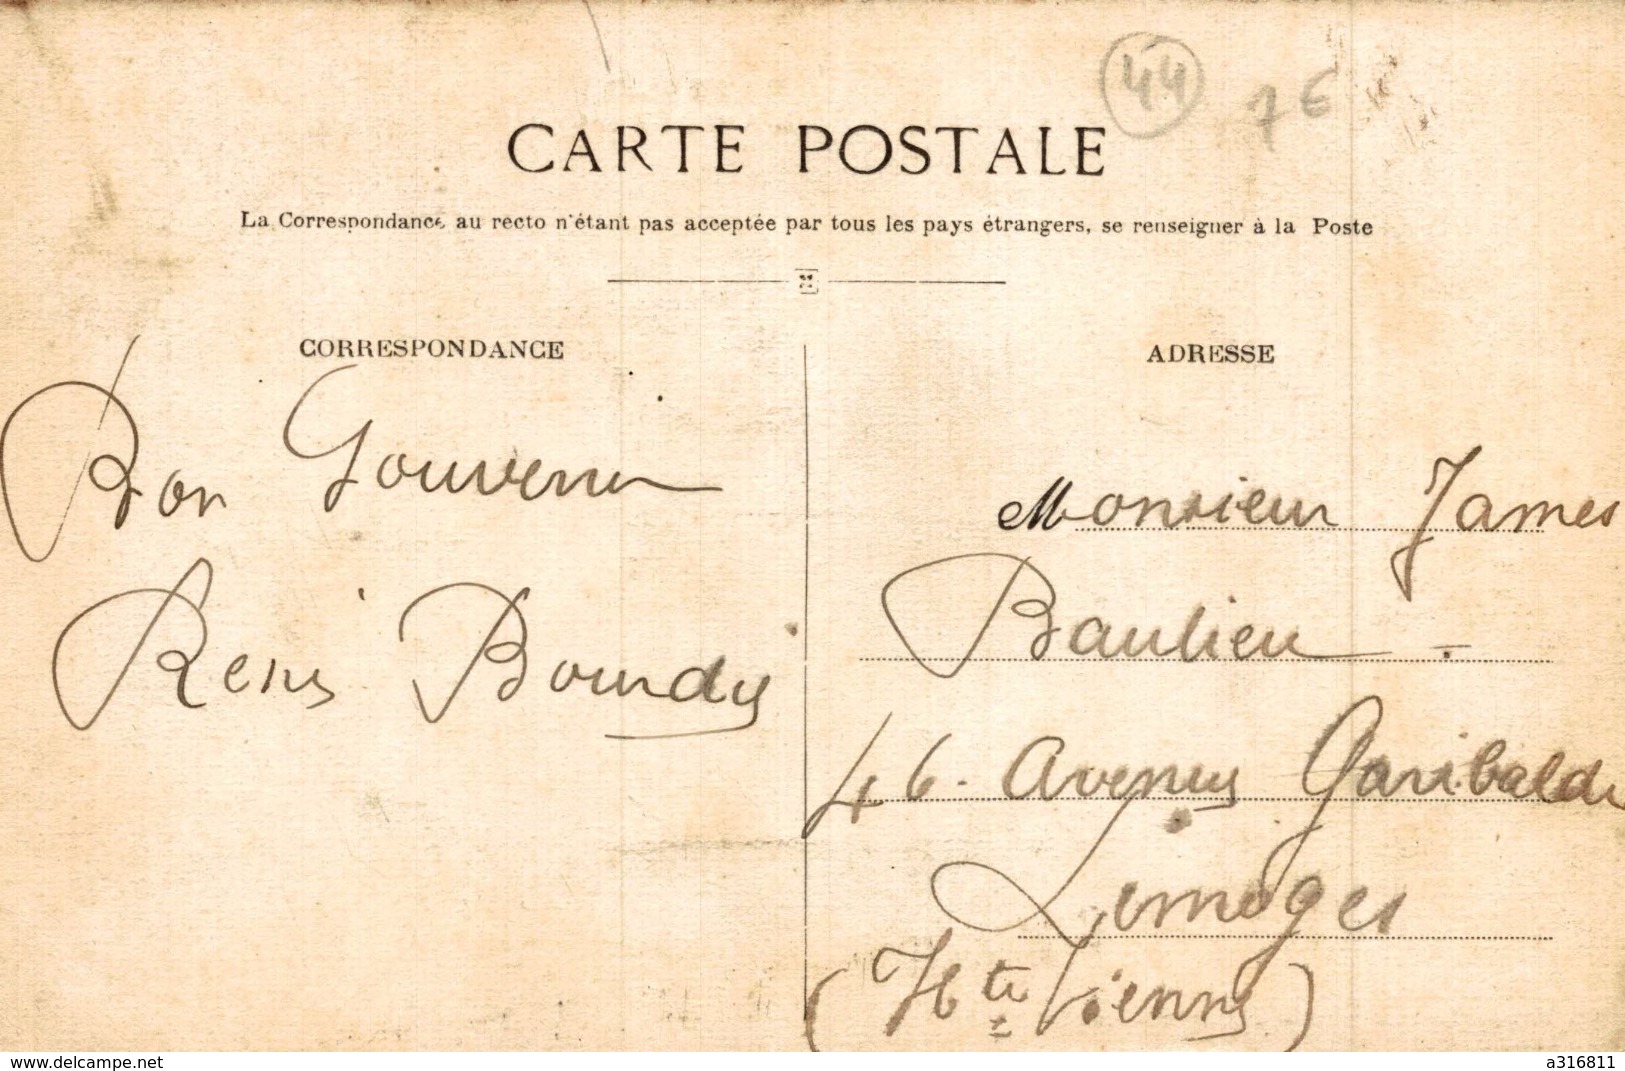 44
7€
CARTE POSTALE
La Correspondance au recto n'étant pas acceptée par tous les pays étrangers, se renseigner à la Poste
CORRESPONDANCE
Bon Souvenir
René
ADRESSE
Monsieur James
Baulieu.
46. Avenue Garibaldi
Limoges
(Hte Vienne)
www.delcampe.net
a316811